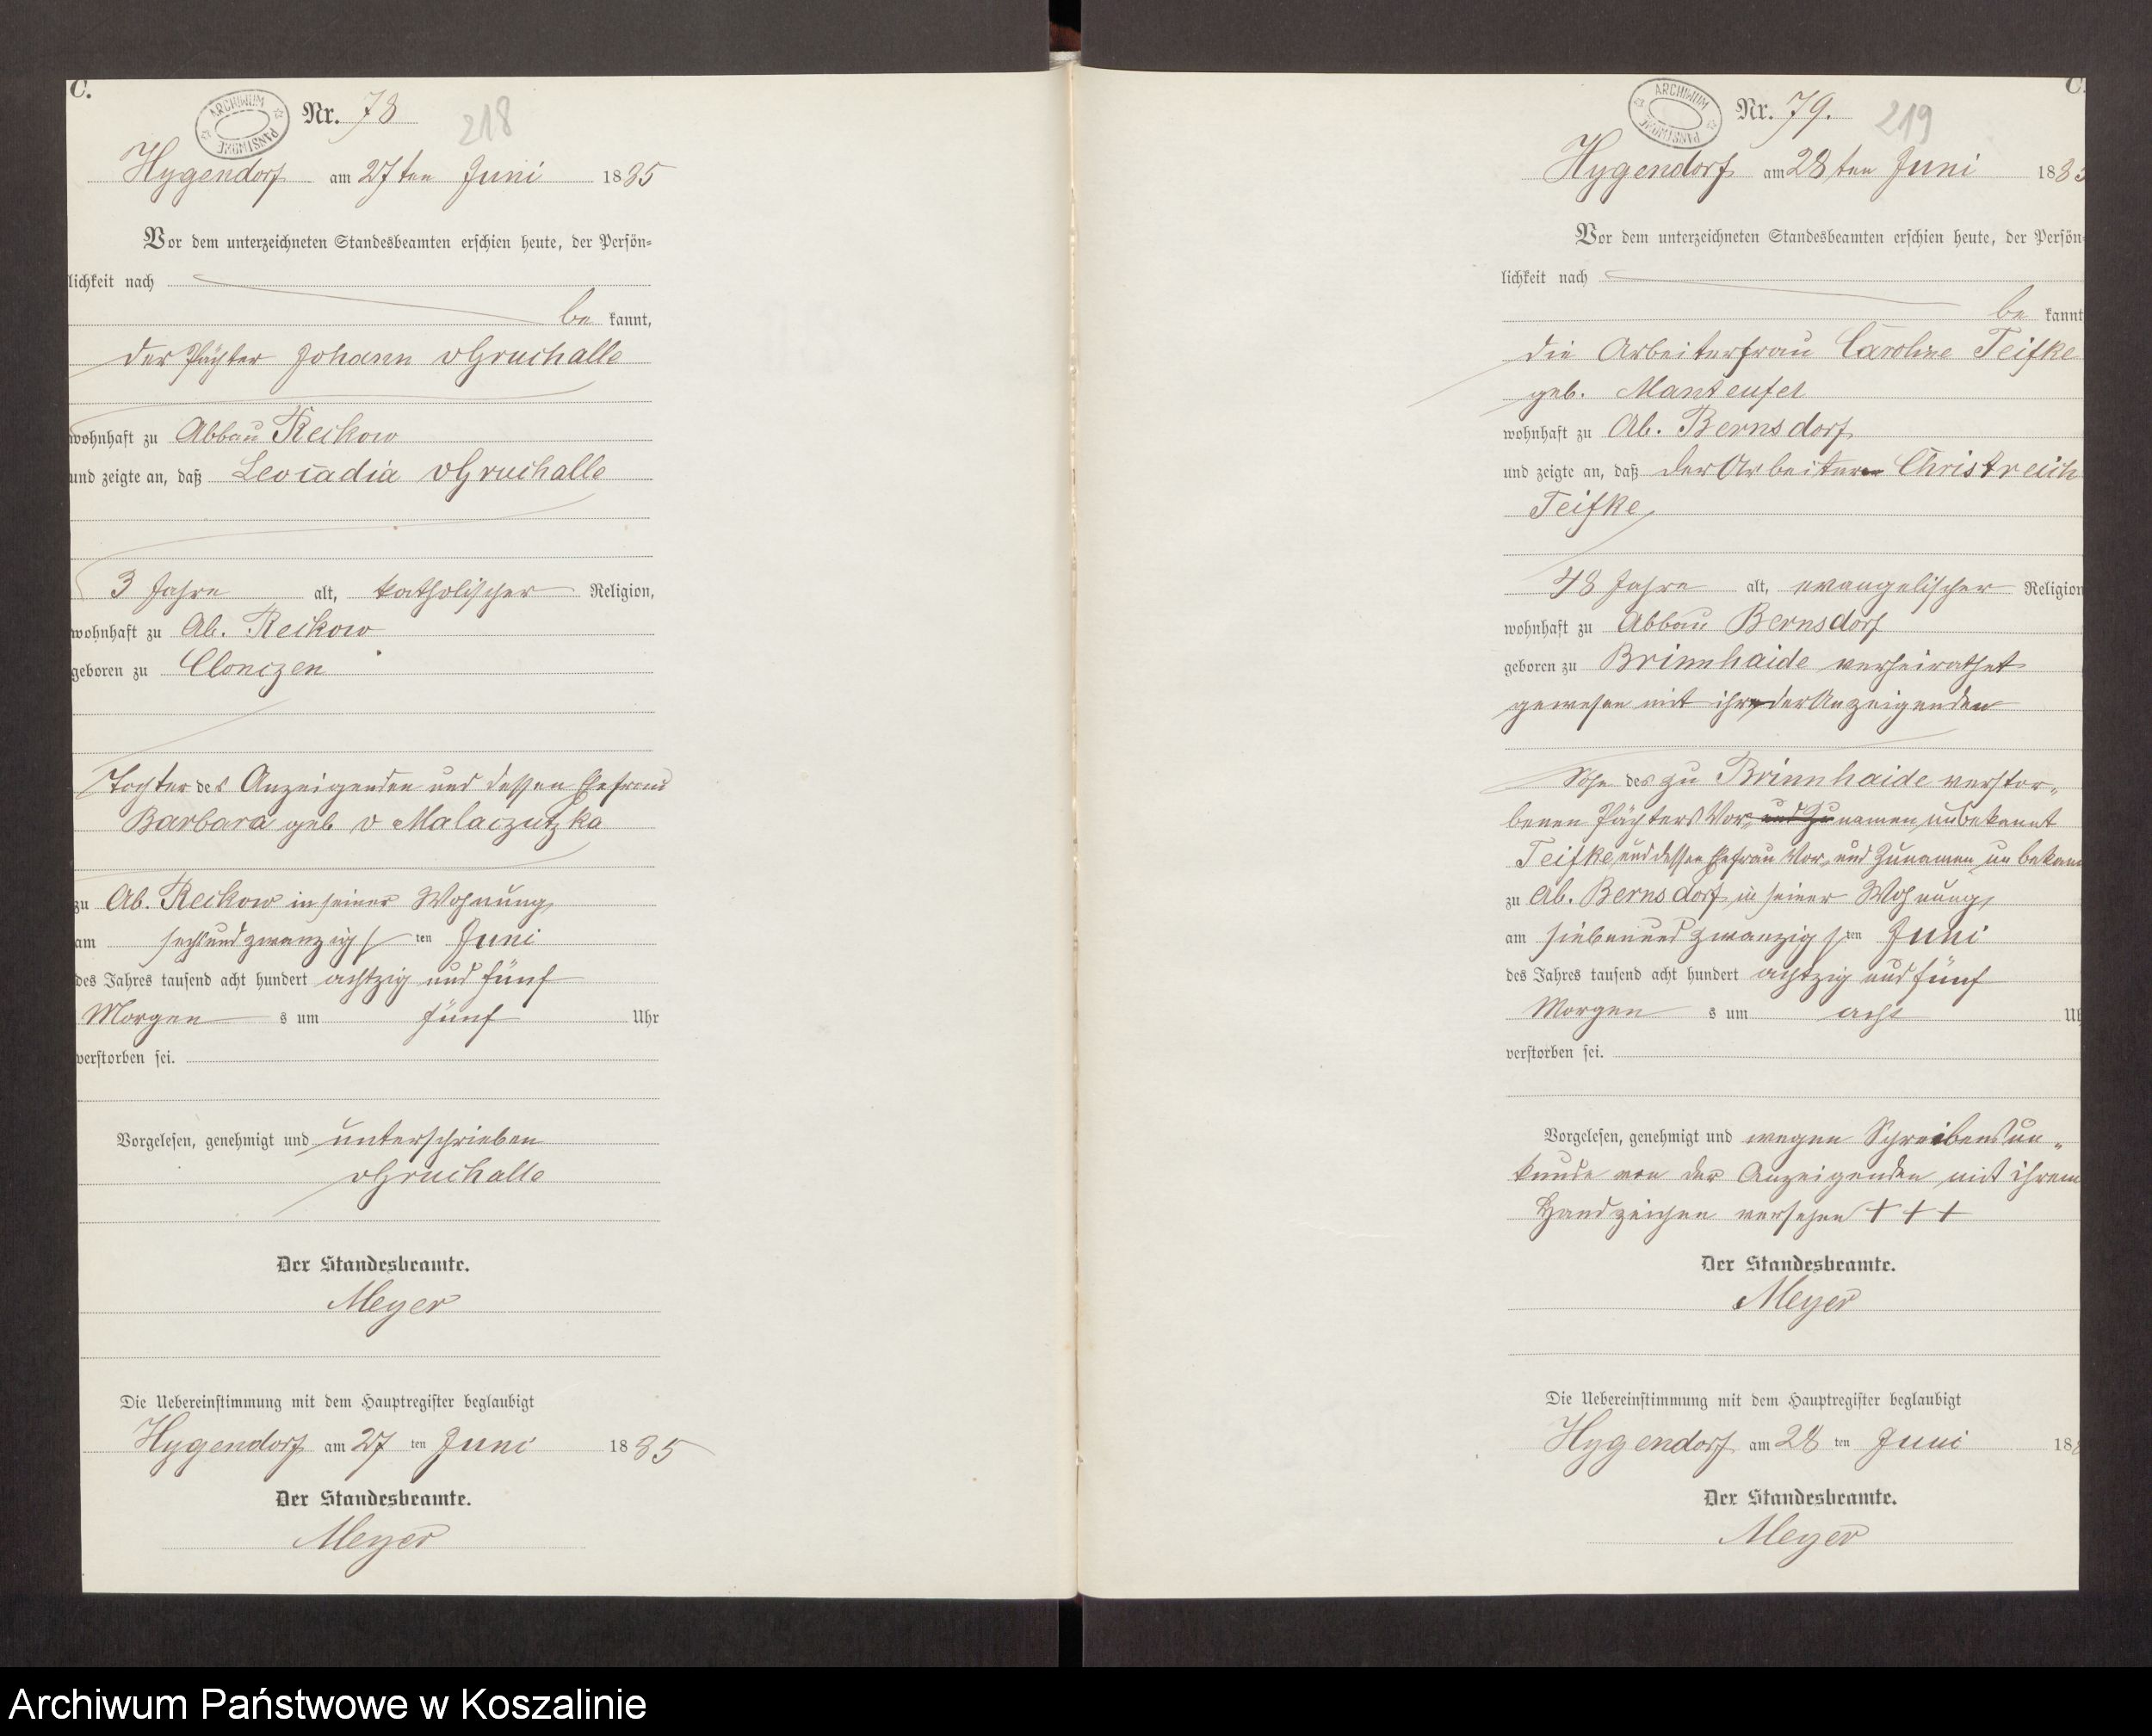 C.
ARCHIWUM PAŃSTWOWE
Nr. 78
218
Hygendorf am 27ten Juni 1885
Vor dem unterzeichneten Standesbeamten erschien heute, der Persön-
lichkeit nach
be kannt,
der Pächter Johann vGruchalle
wohnhaft zu Abbau Reckow
und zeigte an, daß Leocadia vGruchalle
3 Jahre alt, katholischer Religion,
wohnhaft zu Ab. Reckow
geboren zu Clonczen
Tochter des Anzeigenden und dessen Ehefrau
Barbara geb v Malaczutzka
zu Ab. Reckow in seiner Wohnung
am sechsundzwanzigsten Juni
des Jahres tausend acht hundert achtzig und fünf
Morgen s um fünf Uhr
verstorben sei.
Vorgelesen, genehmigt und unterschrieben
vGruchalle
Der Standesbeamte.
Meyer
Die Uebereinstimmung mit dem Hauptregister beglaubigt
Hygendorf am 27 ten Juni 1885
Der Standesbeamte.
Meyer
C.
ARCHIWUM PAŃSTWOWE
Nr. 79.
219
Hygendorf am 28ten Juni 1885
Vor dem unterzeichneten Standesbeamten erschien heute, der Persön-
lichkeit nach
be kannt
die Arbeiterfrau Caroline Teifke
geb. Manteufel
wohnhaft zu Ab. Bernsdorf
und zeigte an, daß der Arbeiter Christreich
Teifke
48 Jahre alt, evangelischer Religion
wohnhaft zu Abbau Bernsdorf
geboren zu Brinnhaide verheirathet
gewesen mit ihr der Anzeigenden
Sohn des zu Brinnhaide verstor-
benen Pächters Vor- und Zunamen unbekannt
Teifke und dessen Ehefrau Vor- und Zunamen unbekannt
zu Ab. Bernsdorf in seiner Wohnung
am siebenundzwanzigsten Juni
des Jahres tausend acht hundert achtzig und fünf
Morgen s um acht Uh
verstorben sei.
Vorgelesen, genehmigt und wegen Schreibensun-
kunde von der Anzeigenden mit ihrem
Handzeichen versehen + + +
Der Standesbeamte.
Meyer
Die Uebereinstimmung mit dem Hauptregister beglaubigt
Hygendorf am 28 ten Juni 188
Der Standesbeamte.
Meyer
Archiwum Państwowe w Koszalinie